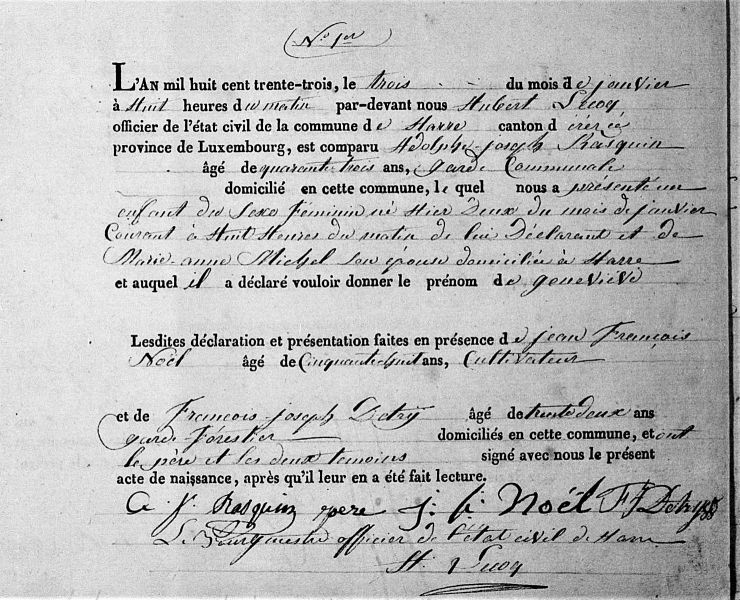 No 1er
L'AN mil huit cent trente-trois, le trois du mois de janvier
à Huit heures du matin par-devant nous Hubert Lecoq
officier de l'état civil de la commune de Harre canton d'érezée
province de Luxembourg, est comparu Adolphe-joseph Rasquin
âgé de quarante trois ans, garde Communale
domicilié en cette commune, le quel nous a présenté un
enfant du Sexe Féminin né Hier Deux du mois de janvier
Courant à Huit Heures du matin de lui Déclarant et de
Marie-anne Michel son epouse domiciliée à Harre
et auquel il a déclaré vouloir donner le prénom de geneviève
Lesdites déclaration et présentation faites en présence de jean François
Noël âgé de Cinquante-huit ans, Cultivateur
et de François-joseph Detry âgé de trente deux ans
garde-Forestier domiciliés en cette commune, et ont
le père et les deux temoins signé avec nous le présent
acte de naissance, après qu'il leur en a été fait lecture.
a j. Rasquin pere j: f: Noël FJ Detry
Le Bourgmestre officier de l'état civil de Harre
H. Lecoq